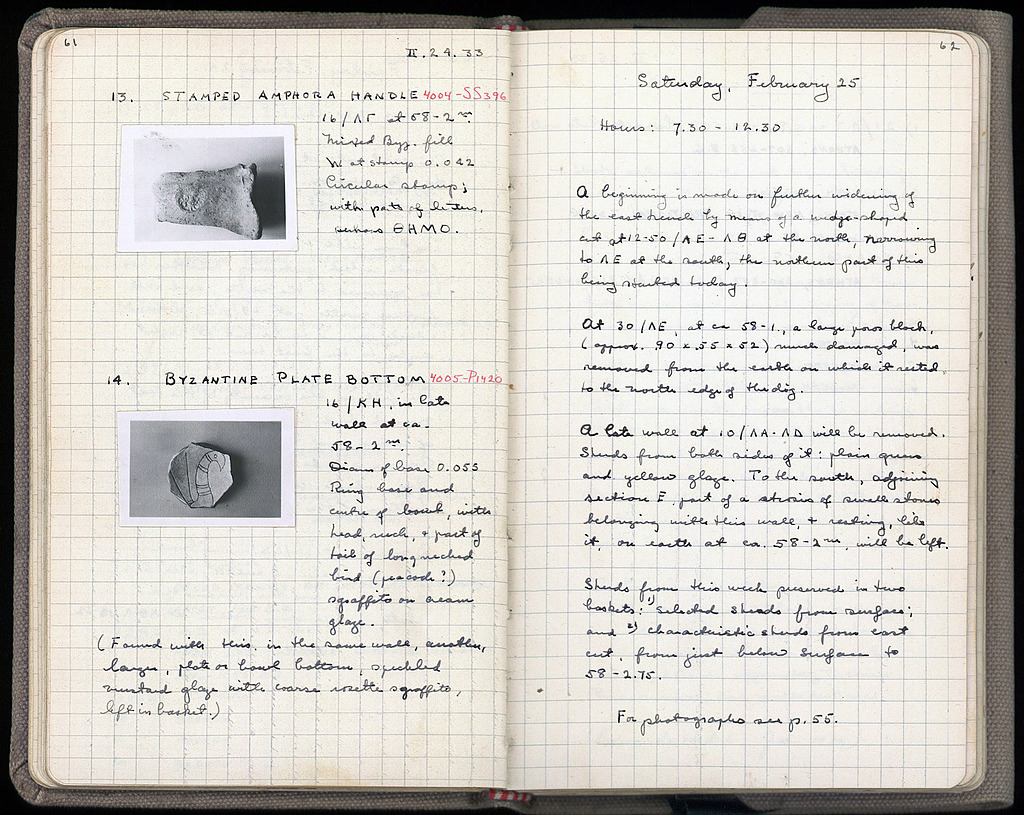 61
II.24.33
13. STAMPED AMPHORA HANDLE 4004-SS396
16/ΛΓ at 58-2 m.
Mixed Byz. fill
W at stamp 0.042
Circular stamp;
with parts of letters,
ΘHMO.
14. BYZANTINE PLATE BOTTOM 4005-P1420
16/KH, in late
wall at ca.
58-2 m.
Diam of base 0.055
Ring base and
centre of bowl, with
head, neck, + part of
tail of long necked
bird (peacock?)
sgraffito on cream
glaze.
(Found with this, in the same wall, another,
larger, plate or bowl bottom, speckled
mustard glaze with coarse rosette sgraffito,
left in basket.)
62
Saturday, February 25
Hours: 7.30 - 12.30
A beginning is made on further widening of
the east trench by means of a wedge-shaped
cut at 12-50/ΛE-ΛΘ at the north, narrowing
to ΛE at the south, the northern part of this
being started today.
At 30/ΛE, at ca 58-1., a large poros block,
(approx. .90 x .55 x 52) much damaged, was
removed from the earth on which it rested,
to the north edge of the dig.
A late wall at 10/ΛA-ΛΔ will be removed.
Sherds from both sides of it: plain green
and yellow glaze. To the south, adjoining
section E, part of a strosis of small stones
belonging with this wall, + resting, like
it, on earth at ca. 58-2 m, will be left.
Sherds from this week preserved in two
baskets: 1) selected sherds from surface;
and 2) characteristic sherds from east
cut, from just below surface to
58-2.75.
For photographs see p. 55.